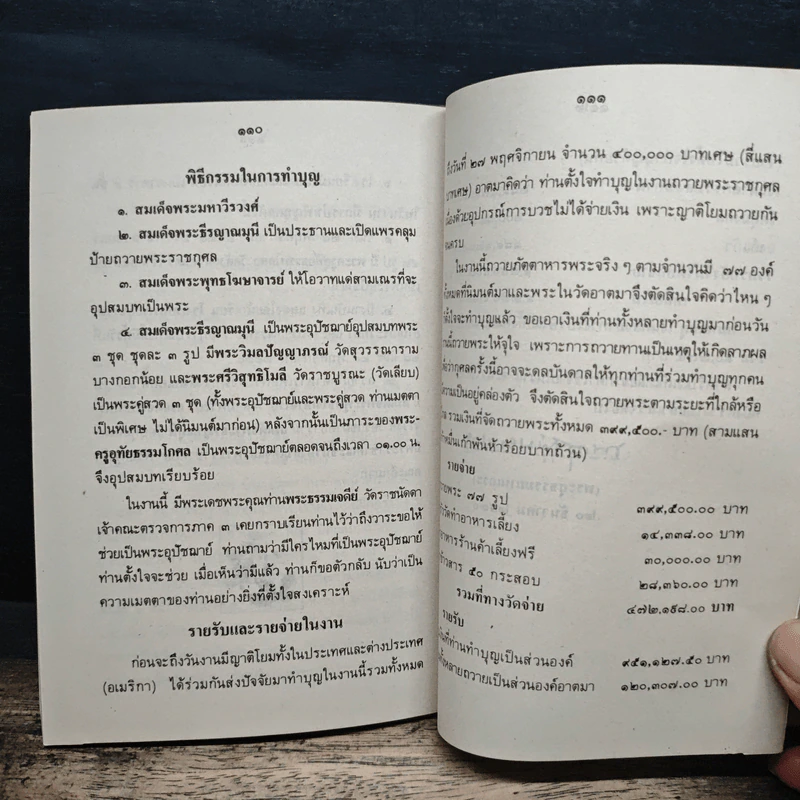 ๑๑๐
พิธีกรรมในการทำบุญ
๑. สมเด็จพระมหาวีรวงศ์
๒. สมเด็จพระธีรญาณมุนี เป็นประธานและเปิดแพรคลุม
ป้ายถวายพระราชกุศล
๓. สมเด็จพระพุทธโฆษาจารย์ ให้โอวาทแด่สามเณรที่จะ
อุปสมบทเป็นพระ
๔. สมเด็จพระธีรญาณมุนี เป็นพระอุปัชฌาย์อุปสมบทพระ
๓ ชุด ชุดละ ๓ รูป มีพระวิมลปัญญาภรณ์ วัดสุวรรณาราม
บางกอกน้อย และพระศรีวิสุทธิโมลี วัดราชบูรณะ (วัดเลียบ)
เป็นพระคู่สวด ๓ ชุด (ทั้งพระอุปัชฌาย์และพระคู่สวด ท่านเมตตา
เป็นพิเศษ ไม่ได้นิมนต์มาก่อน) หลังจากนั้นเป็นภาระของพระ-
ครูอุทัยธรรมโกศล เป็นพระอุปัชฌาย์ตลอดจนถึงเวลา ๐๑.๐๐ น.
จึงอุปสมบทเรียบร้อย
ในงานนี้ มีพระเดชพระคุณท่านพระธรรมเจดีย์ วัดราชนัดดา
เจ้าคณะตรวจการภาค ๓ เคยกราบเรียนท่านไว้ว่าถึงวาระขอให้
ช่วยเป็นพระอุปัชฌาย์ ท่านถามว่ามีใครไหมที่เป็นพระอุปัชฌาย์
ท่านตั้งใจจะช่วย เมื่อเห็นว่ามีแล้ว ท่านก็ขอตัวกลับ นับว่าเป็น
ความเมตตาของท่านอย่างยิ่งที่ตั้งใจสงเคราะห์
รายรับและรายจ่ายในงาน
ก่อนจะถึงวันงานมีญาติโยมทั้งในประเทศและต่างประเทศ
(อเมริกา) ได้ร่วมกันส่งปัจจัยมาทำบุญในงานนี้รวมทั้งหมด
๑๑๑
ถึงวันที่ ๒๗ พฤศจิกายน จำนวน ๔๐๐,๐๐๐ บาทเศษ (สี่แสน
บาทเศษ) อาตมาคิดว่า ท่านตั้งใจทำบุญในงานถวายพระราชกุศล
เนื่องด้วยอุปกรณ์การบวชไม่ได้จ่ายเงิน เพราะญาติโยมถวายกัน
นครบ
ในงานนี้ถวายภัตตาหารพระจริง ๆ ตามจำนวนมี ๗๗ องค์
ทั้งหมดที่นิมนต์มาและพระในวัดอาตมาจึงตัดสินใจคิดว่าไหน ๆ
ตั้งใจจะทำบุญแล้ว ขอเอาเงินที่ท่านทั้งหลายทำบุญมาก่อนวัน
านนี้ถวายพระให้จุใจ เพราะการถวายทานเป็นเหตุให้เกิดลาภผล
ือว่ากุศลครั้งนี้อาจจะดลบันดาลให้ทุกท่านที่ร่วมทำบุญทุกคน
ความเป็นอยู่คล่องตัว จึงตัดสินใจถวายพระตามระยะที่ใกล้หรือ
ล รวมเงินที่จัดถวายพระทั้งหมด ๓๙๙,๕๐๐.- บาท (สามแสน
าหมื่นเก้าพันห้าร้อยบาทถ้วน)
รายจ่าย
วายพระ ๗๗ รูป ๓๙๙,๕๐๐.๐๐ บาท
วัดทำอาหารเลี้ยง ๑๔,๓๓๘.๐๐ บาท
าหารร้านค้าเลี้ยงฟรี ๓๐,๐๐๐.๐๐ บาท
้าวสาร ๕๐ กระสอบ ๒๘,๓๖๐.๐๐ บาท
รวมที่ทางวัดจ่าย ๔๗๒,๑๙๘.๐๐ บาท
รายรับ
เงินที่ท่านทำบุญเป็นส่วนองค์ ๙๕๑,๑๒๗.๕๐ บาท
ทั้งหลายถวายเป็นส่วนองค์อาตมา ๑๒๐,๓๐๗.๐๐ บาท